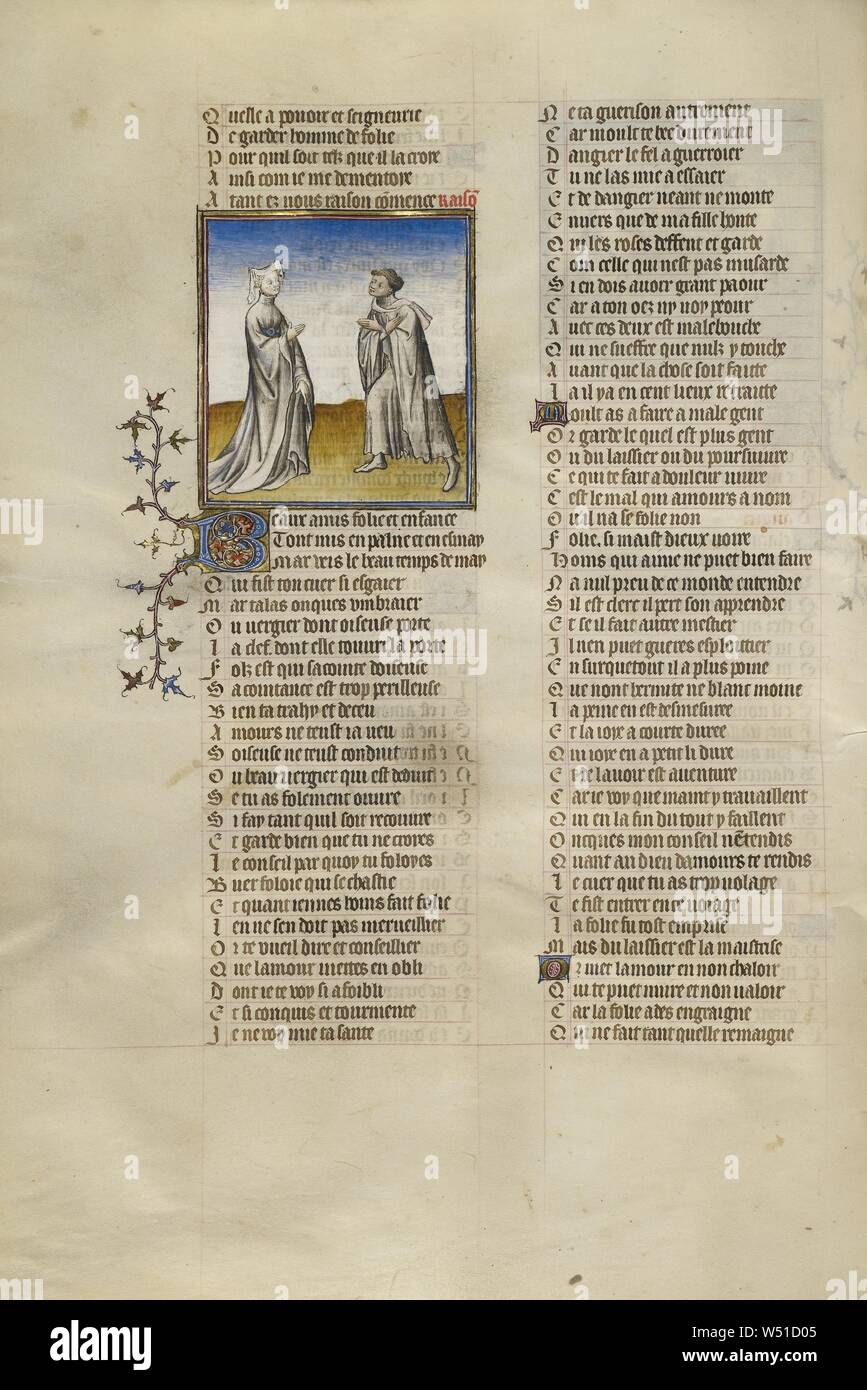 Quelle a pouoir et seigneurie
De garder homme de folie
Pour quil soit telz que il la croie
Ainsi com ie me dementoie
Atant ez uous raison cōmence Raisō
Beaux amis folie et enfance
Tont mis en paine et en esmay
Mar veis le beau temps de may
Qui fist ton cuer si esgaier
Mar talas onques vmbraier
Ou uergier dont oiseuse porte
La clef dont elle touurt la porte
Folz est qui sacointe doiseuse
Sacointance est trop perilleuse
Bien ta trahy et deceu
Amours ne teust ia ueu
Soiseuse ne teust conduit
Ou beau uergier qui est deduit
Se tu as folement ouure
Si fay tant quil soit recouure
Et garde bien que tu ne croies
Le conseil par quoy tu foloyes
Buer foloie qui se chastie
Et quant iennes homs fait folie
Len ne sen doit pas merueillier
Or te vueil dire et conseillier
Que lamour mettes en obli
Dont ie te voy si afoibli
Et si conquis et tourmente
Je ne voy mie ta sante
Ne ta guerison autrement
Car moult te bee durement
Dangier le fel a guerroier
Tu ne las mie a essaier
Et de dangier neant ne monte
Enuers que de ma fille honte
Qui les roses deffent et garde
Com celle qui nest pas musarde
Si en dois auoir grant paour
Car a ton oez ny uoy peour
Auec ces deux est malebouche
Qui ne sueffre que nulz y touche
Auant que la chose soit faicte
La il ya en cent lieux retraicte
Moult as a faire a male gent
Or garde le quel est plus gent
Ou du laissier ou du poursuiure
Ce qui te fait a douleur uiure
Cest le mal qui amours a nom
Ou il na se folie non
Folie. si maist dieux uoire
Homs qui aime ne puet bien faire
Na nul preu de ce monde entendre
Sil est clerc il pert son apprendre
Et se il fait autre mestier
Il nen puet gueres esploittier
En surquetout il a plus poine
Que nont hermite ne blanc moine
La peine en est desmesuree
Et la ioye a courte duree
Qui ioye en a petit li dure
Et de lauoir est auenture
Car ie voy que maint y trauaillent
Qui en la fin du tout y faillent
Oncques mon conseil nētendis
Quant au dieu damours te rendis
Le cuer que tu as trop uolage
Te fist entrer en ce uoiage
La folie fu tost emprise
Mais du laissier est la maistrise
Or met lamour en non chaloir
Qui te puet nuire et non ualoir
Car la folie ades engraigne
Qui ne fait tant quelle remaigne
alamy
Image ID: W51D05
www.alamy.com